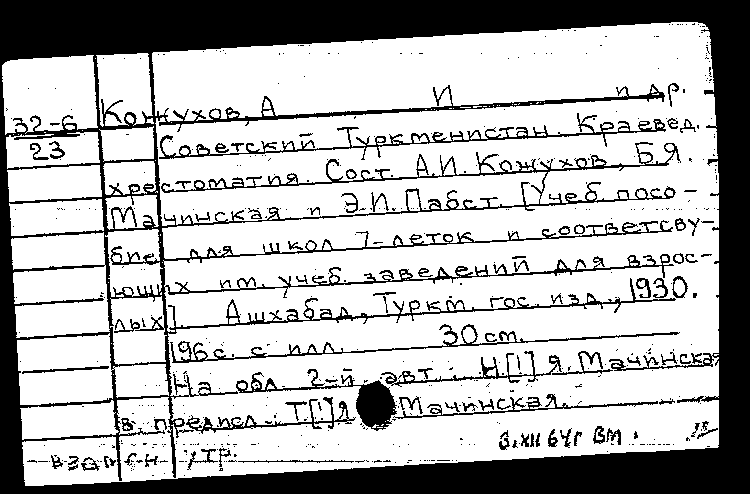 Кожухов, А И и др.
32-6
23
Советский Туркменистан. Краевед.
хрестоматия. Сост. А.И. Кожухов, Б.Я.
Мачинская и Э.И. Пабст. [Учеб. посо-
бие для школ 7-леток и соответсву-
ющих им. учеб. заведений для взрос-
лых]. Ашхабад, Туркм. гос. изд., 1930.
196 с. с илл. 30 см.
На обл. 2-й авт.: Н[!] Я. Мачинская
в. предисл.: Т[!]Я Мачинская.
3.XII 64г Вт.